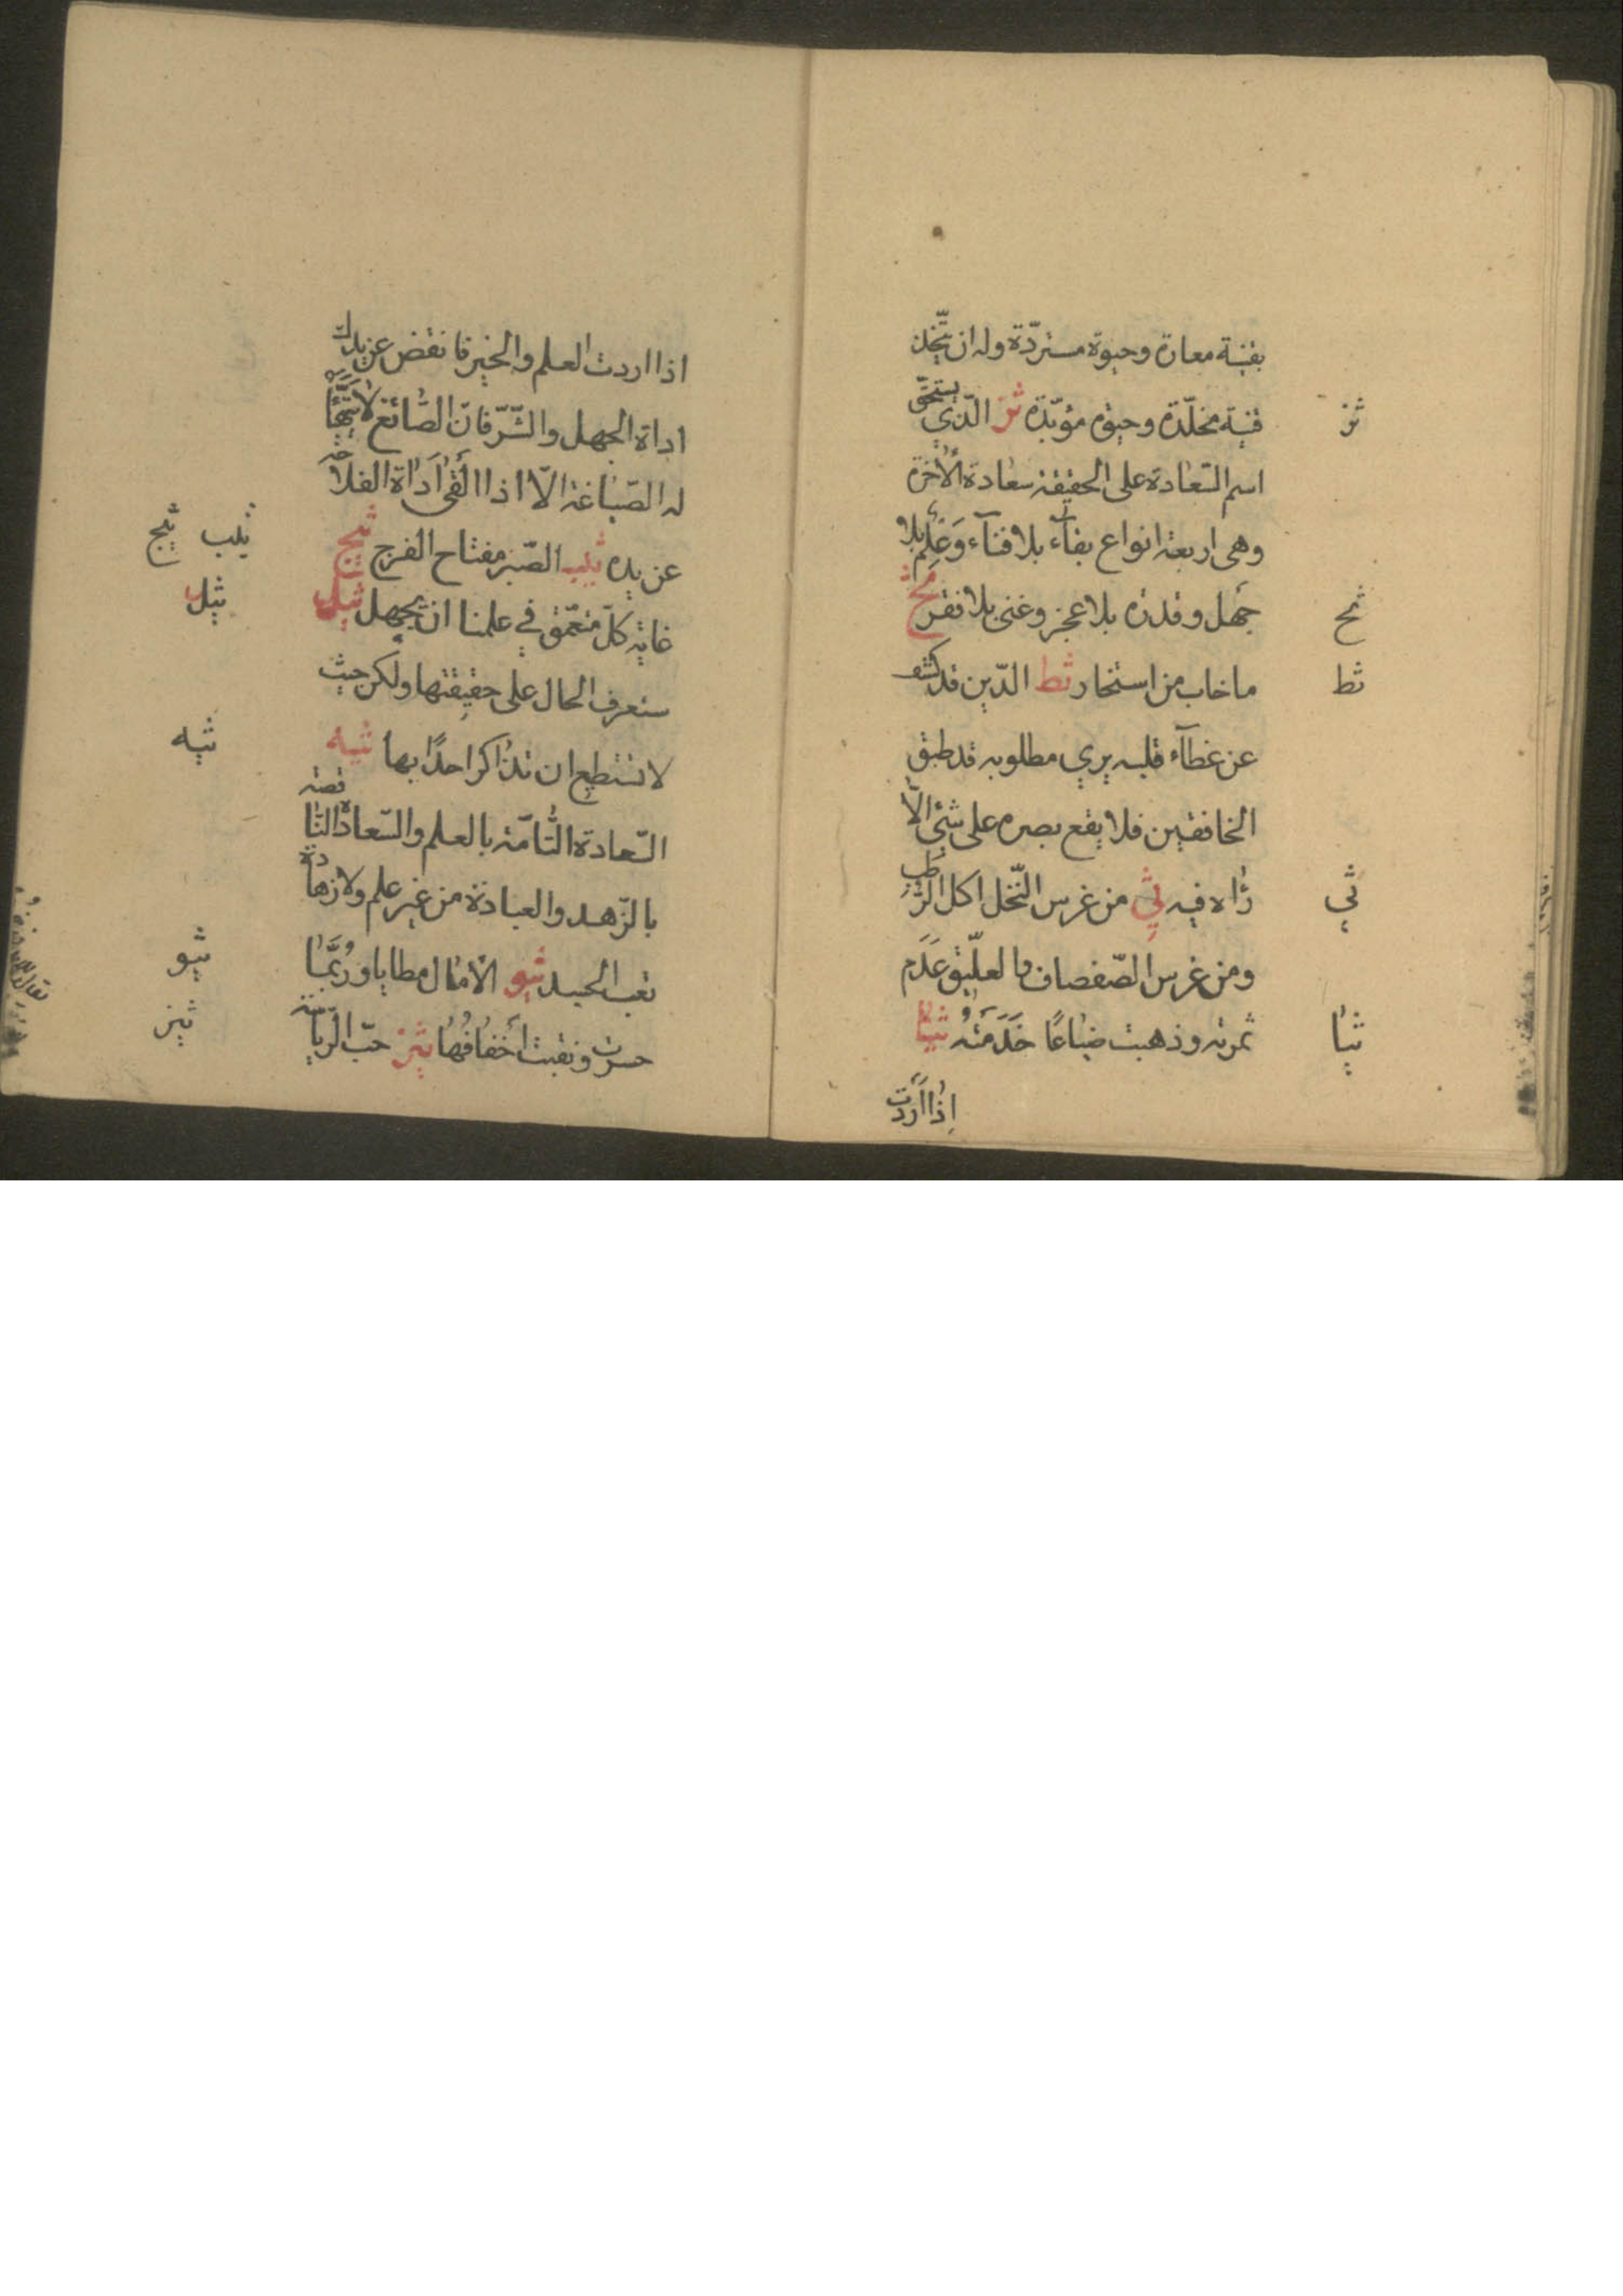 بقنية معارة وحيوة مستردّة وله ان يتّخذ
قنية مخلّدة وحيوة مؤبّدة ثز الّذي يستحقّ
ثز
اسم السّعادة على الحقيقة سعادة الأخرة
وهى اربعة انواع بقآء بلا فنآء وَعِلم بلا
جهل وقدرة بلا عجز وغنى بلا فقر ثح
ثح
ما خاب من استخار ثط الّذين قد كشف
ثط
عن غطآء قلبه يري مطلوبه قد طبق
الخافقين فلا يقع بصره على شئ الّا
رَاه فيه ثي من غرس النّخل اكل الرّطب
ثي
ومن غرس الصّفصاف والعلّيق عَدَم
ثمرته وذهبت ضياعًا خَدَمَتُه ثيا
ثيا
اِذا اَرَدت
اذا اردت العلم والخير فانفض عن يدك
اداة الجهل والشّرّ فانّ الصّائغ لا يتهيّأ
له الصّياغة الّا اذا القى اَداة الفلاحة
عن يده ثيب الصّبر مفتاح الفرج ثيج
ثيب ثيج
غاية كلّ متعمّق في علمنا ان يجهل ثيل
ثيل
ستعرف الحال على حقيقتها ولكن حيث
لا تستطيع ان تذاكر احدًا بها ثيه
ثيه
السّعادة التّامّة بالعلم والسّعادة النّاقصة
بالزّهد والعبادة من غير علم ولا زهادة
تعب الجسد ثيو الآمال مطايا وَرُبَّما
ثيو
حسرت ونقبت اَخفافُها ثيز حبّ الرّياسة
ثيز